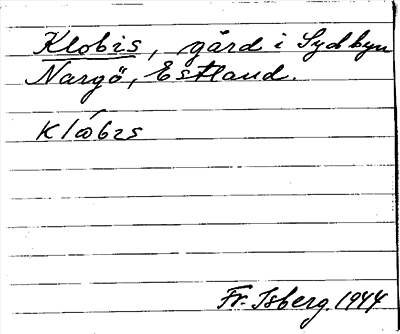 Klobis, gård i Sydbyn
Nargö, Estland.
Fr. Isberg. 1944